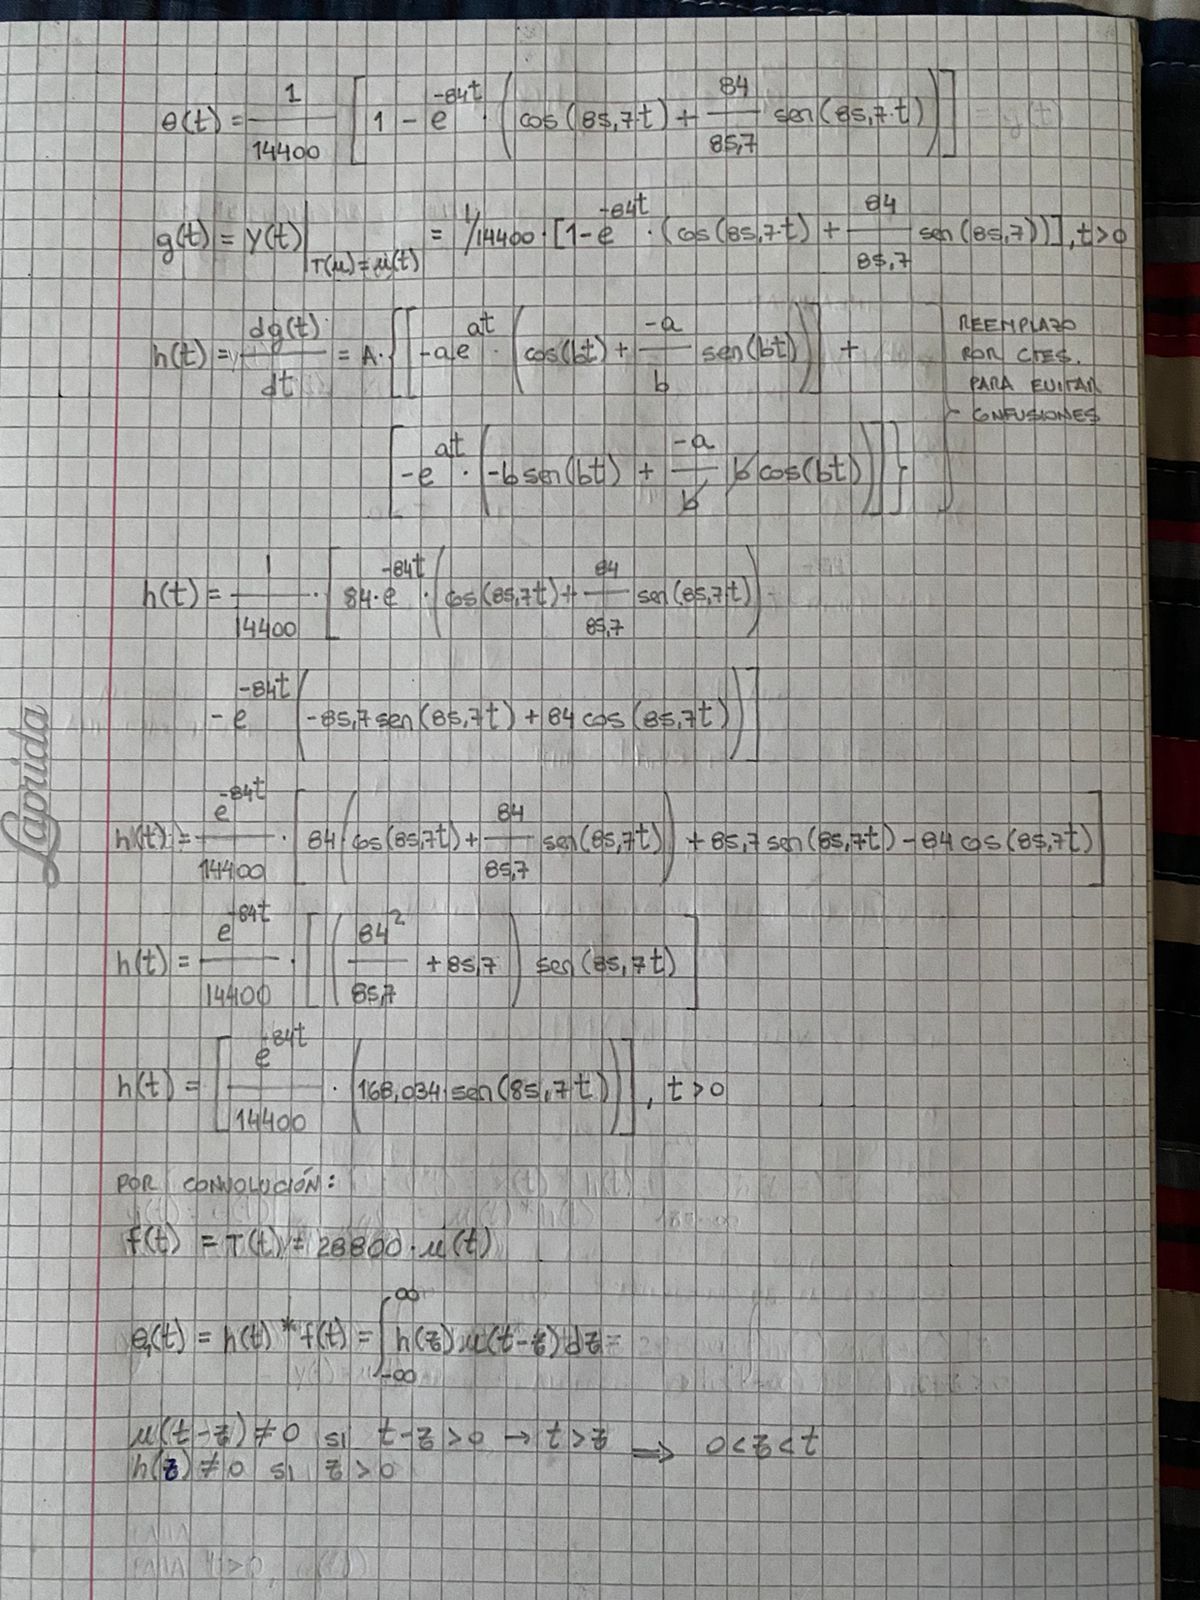 θ(t) = 1/14400 [1 - e^-84t · (cos(85,7·t) + 84/85,7 sen(85,7·t))]
g(t) = y(t)|T(μ)=μ(t) = 1/14400 · [1-e^-84t · (cos(85,7t) + 84/85,7 sen(85,7))], t>0
h(t) = dg(t)/dt = A·{[-ae^at · (cos(bt) + -a/b sen(bt))] +
[-e^at · (-b sen(bt) + -a/b b cos(bt))]}
REEMPLAZO
POR CTES.
PARA EVITAR
CONFUSIONES
h(t) = 1/14400 · [84·e^-84t · (cos(85,7t) + 84/85,7 sen(85,7t))
- e^-84t (-85,7 sen(85,7t) + 84 cos(85,7t))]
h(t) = e^-84t/14400 · [84 (cos(85,7t) + 84/85,7 sen(85,7t)) + 85,7 sen(85,7t) - 84 cos(85,7t)]
h(t) = e^-84t/14400 · [(84²/85,7 + 85,7) sen(85,7t)]
h(t) = [e^-84t/14400 · (168,034·sen(85,7t))], t>0
POR CONVOLUCIÓN:
f(t) = T(t) = 28800·μ(t)
θ(t) = h(t) * f(t) = ∫-∞^∞ h(z) μ(t-z) dz =
μ(t-z) ≠ 0 si t-z>0 → t>z ⟹ 0<z<t
h(z) ≠ 0 si z>0
Laprida